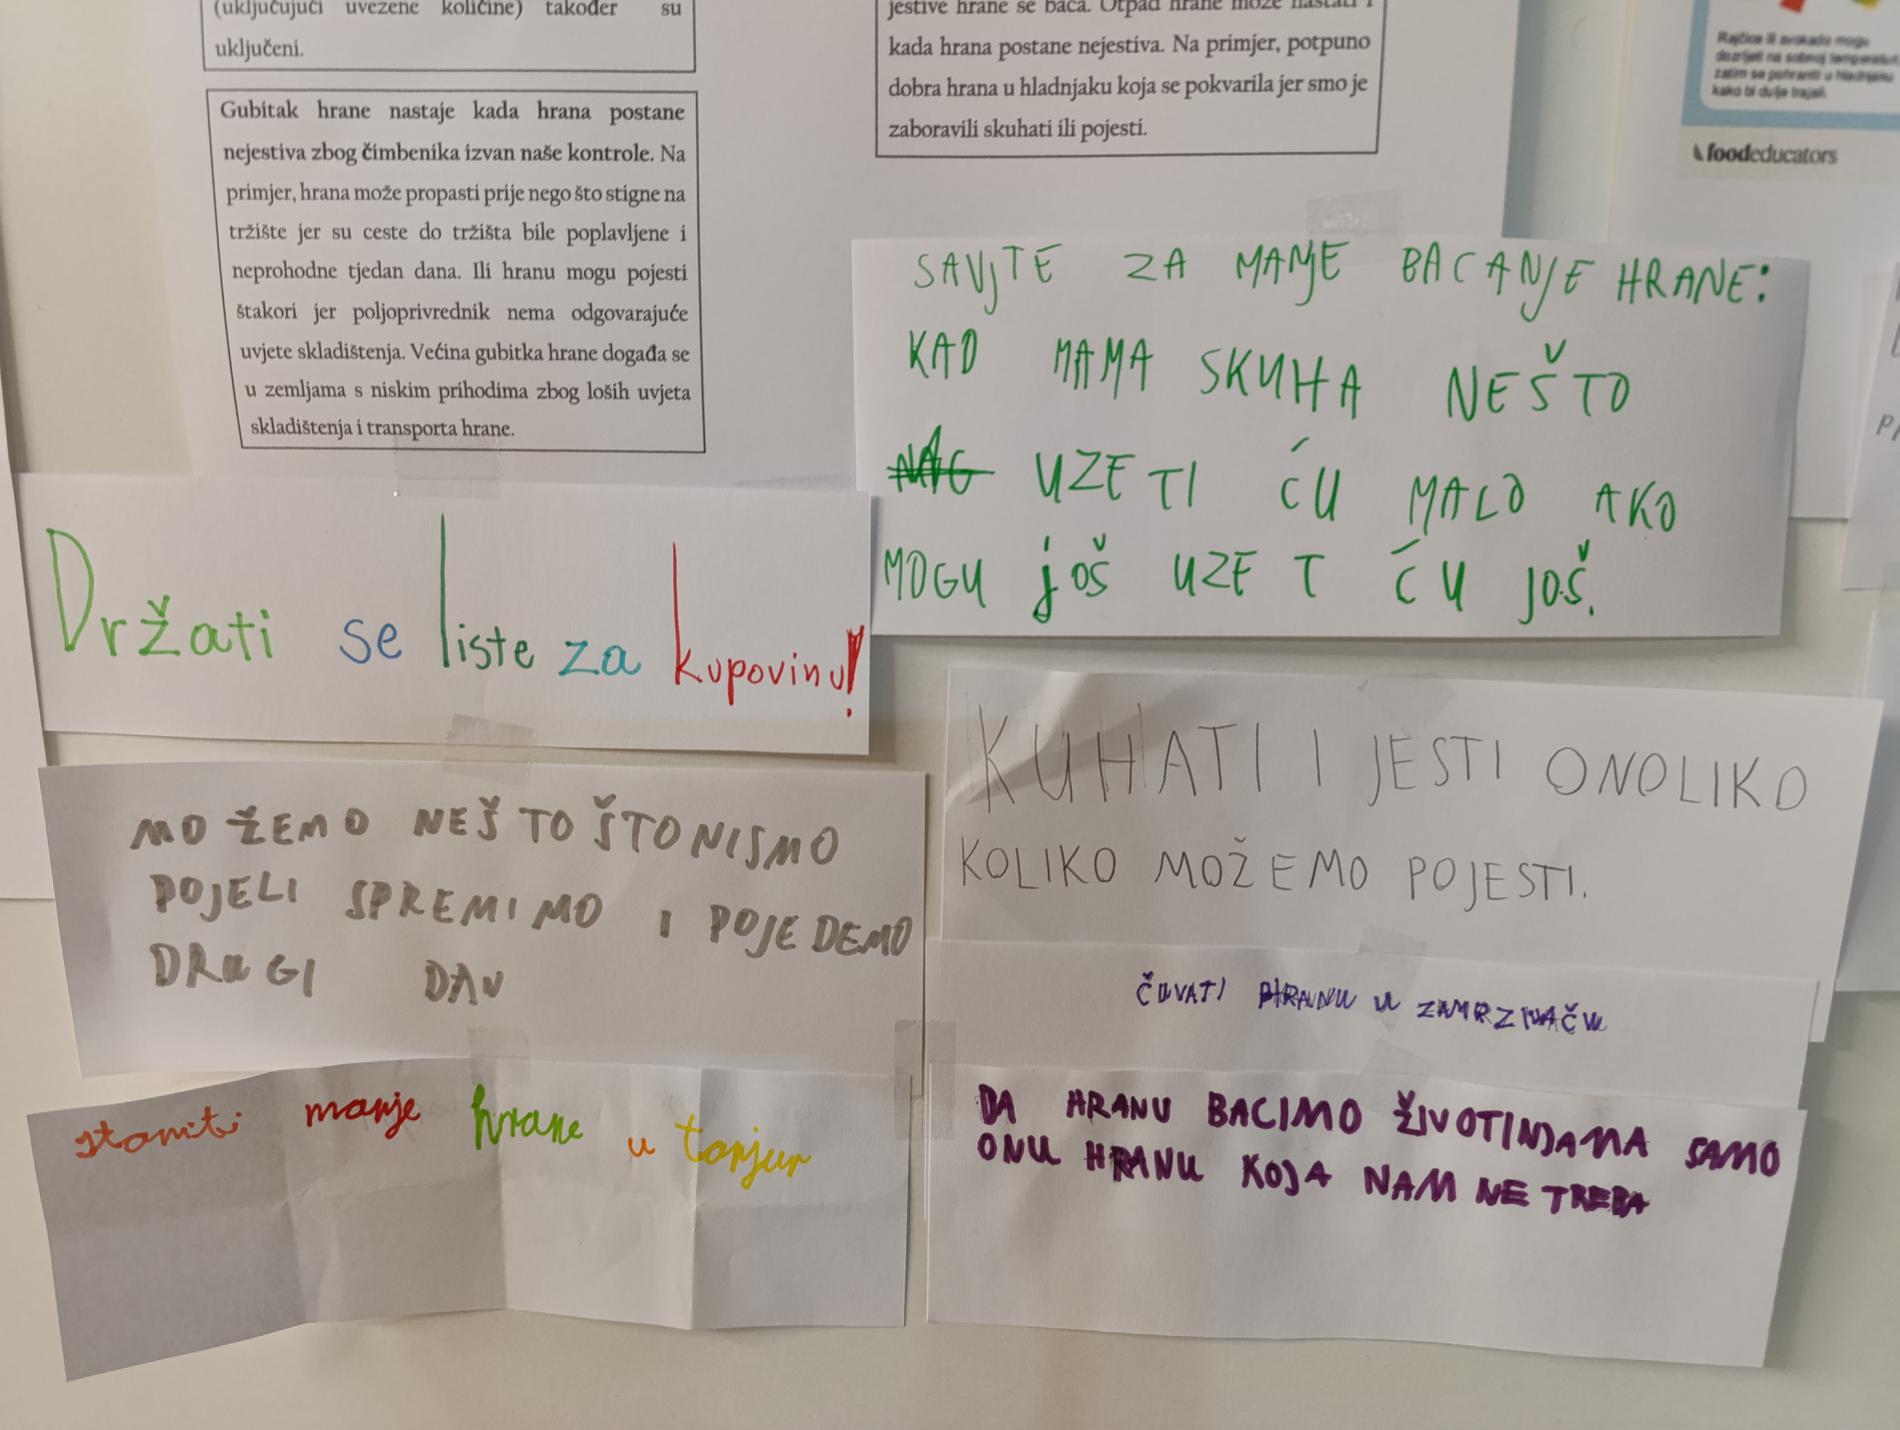 (uključujući uvezene količine) također su
uključeni.
Gubitak hrane nastaje kada hrana postane
nejestiva zbog čimbenika izvan naše kontrole. Na
primjer, hrana može propasti prije nego što stigne na
tržište jer su ceste do tržišta bile poplavljene i
neprohodne tjedan dana. Ili hranu mogu pojesti
štakori jer poljoprivrednik nema odgovarajuće
uvjete skladištenja. Većina gubitka hrane događa se
u zemljama s niskim prihodima zbog loših uvjeta
skladištenja i transporta hrane.
jestive hrane se baca. Otpad hrane može nastati i
kada hrana postane nejestiva. Na primjer, potpuno
dobra hrana u hladnjaku koja se pokvarila jer smo je
zaboravili skuhati ili pojesti.
Rajčice ili avokado mogu
dozrijeti na sobnoj
zatim se pohraniti u hladnjaku
kako bi dulje trajali.
foodeducators
SAVJTE ZA MANJE BACANJE HRANE:
KAD MAMA SKUHA NEŠTO
UZETI ĆU MALO AKO
MOGU JOŠ UZET ĆU JOŠ.
Držati se liste za kupovinu!
KUHATI I JESTI ONOLIKO
KOLIKO MOŽEMO POJESTI.
MOŽEMO NEŠTO ŠTO NISMO
POJELI SPREMIMO I POJEDEMO
DRUGI DAN
ČUVATI HRANU U ZAMRZIVAČU
staviti manje hrane u tanjur
DA HRANU BACIMO ŽIVOTINJAMA SAMO
ONU HRANU KOJA NAM NE TREBA